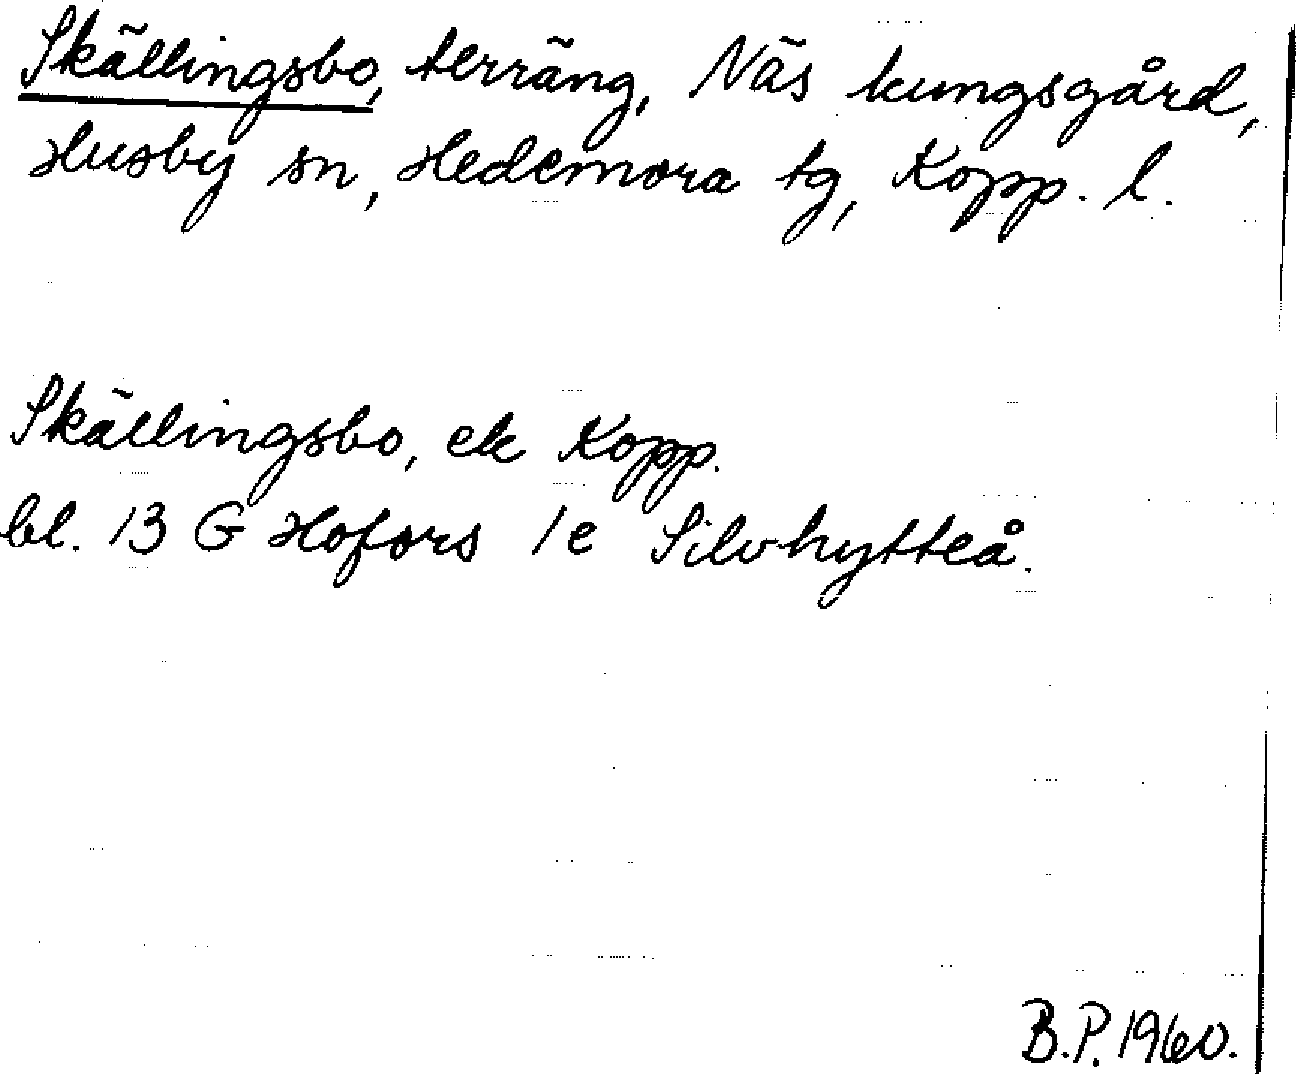 Skällingsbo, terräng, Näs kungsgård,
Husby sn, Hedemora tg, Kopp. l.
Skällingsbo, ek Kopp.
bl. 13 G Hofors 1e Silvhytteå.
B.P. 1960.